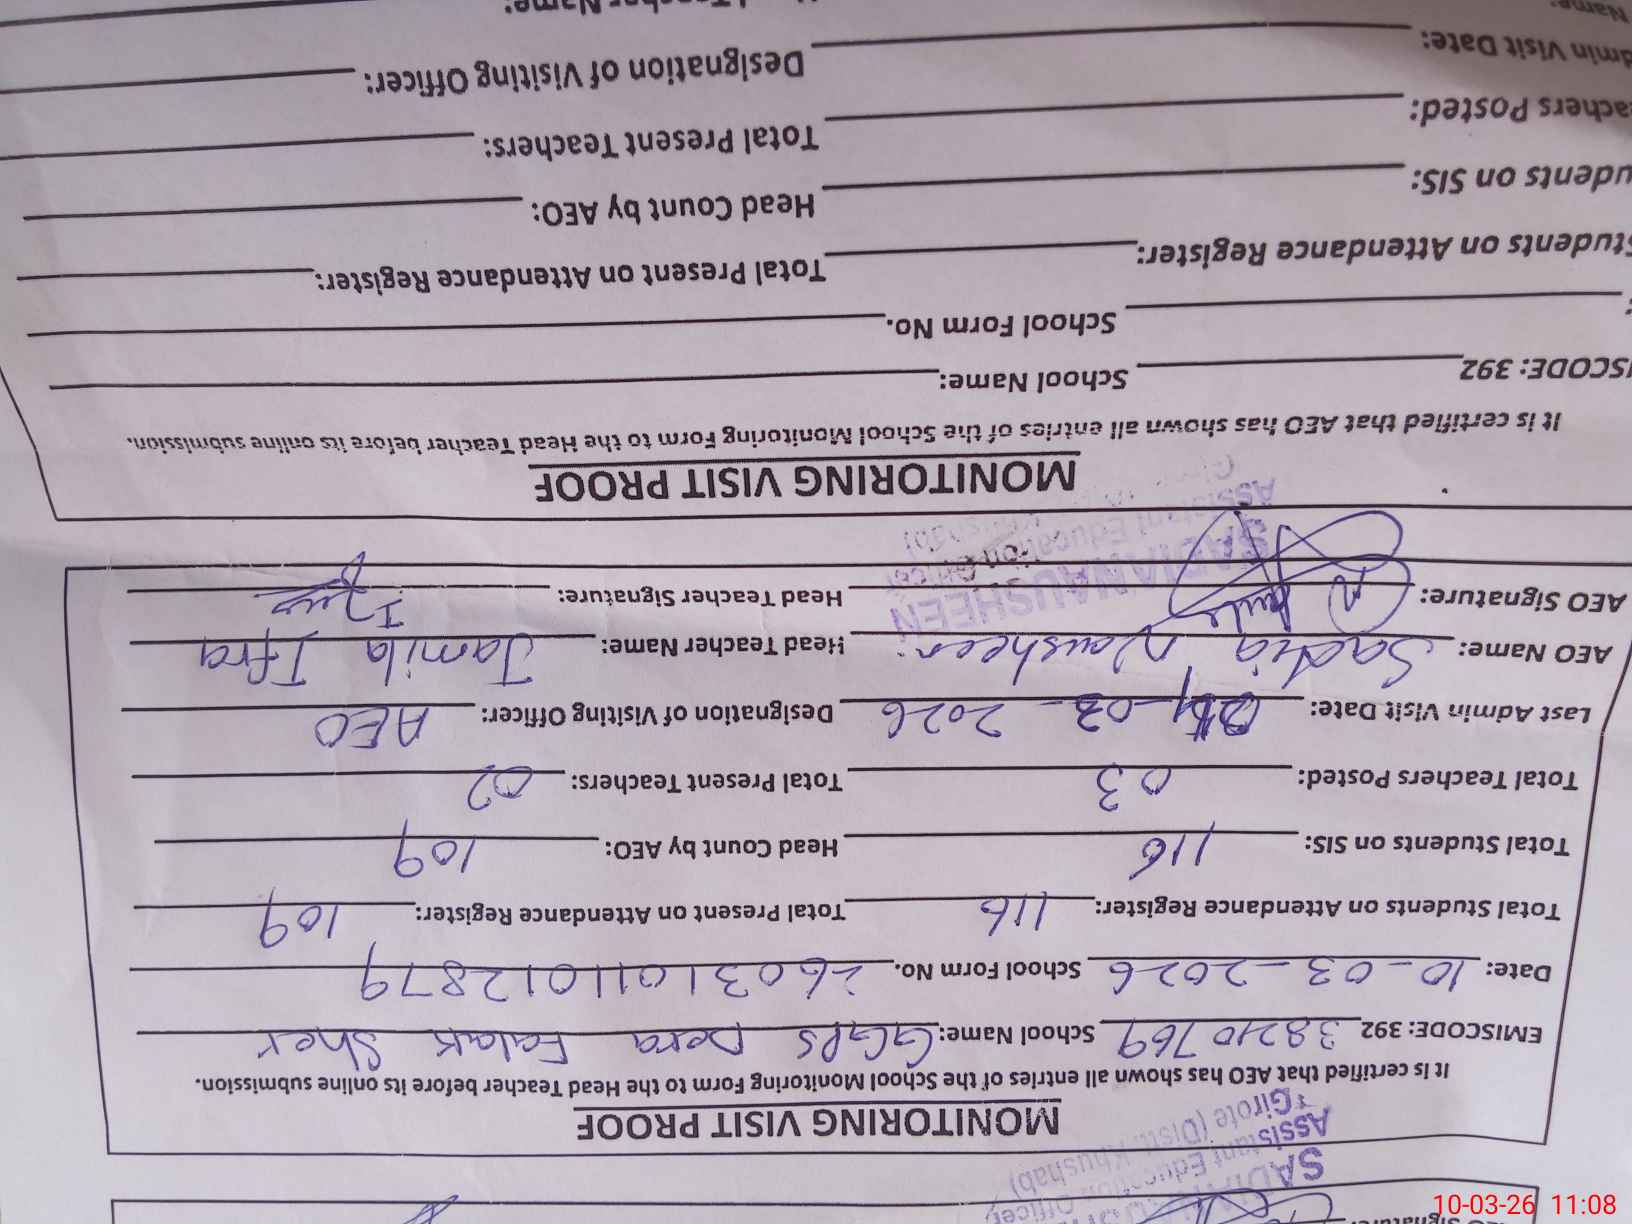 Signature:
SADIA NAUSHEEN
Assistant Education Officer
Girote (Distt. Khushab)
MONITORING VISIT PROOF
It is certified that AEO has shown all entries of the School Monitoring Form to the Head Teacher before its online submission.
EMISCODE: 392 38210769 School Name: GGPS Dera Falak Sher
Date: 10-03-2026 School Form No. 26031011012879
Total Students on Attendance Register: 116 Total Present on Attendance Register: 109
Total Students on SIS: 116 Head Count by AEO: 109
Total Teachers Posted: 03 Total Present Teachers: 02
Last Admin Visit Date: 03-2026 Designation of Visiting Officer: AEO
AEO Name: Sadia Nausheen Head Teacher Name: Jamila Ifra
AEO Signature: Head Teacher Signature:
SADIA NAUSHEEN
Assistant Education Officer
MONITORING VISIT PROOF
It is certified that AEO has shown all entries of the School Monitoring Form to the Head Teacher before its online submission.
ISCODE: 392 School Name:
School Form No.
Students on Attendance Register: Total Present on Attendance Register:
udents on SIS: Head Count by AEO:
achers Posted: Total Present Teachers:
dmin Visit Date: Designation of Visiting Officer:
Name: Teacher Name:
10-03-26 11:08